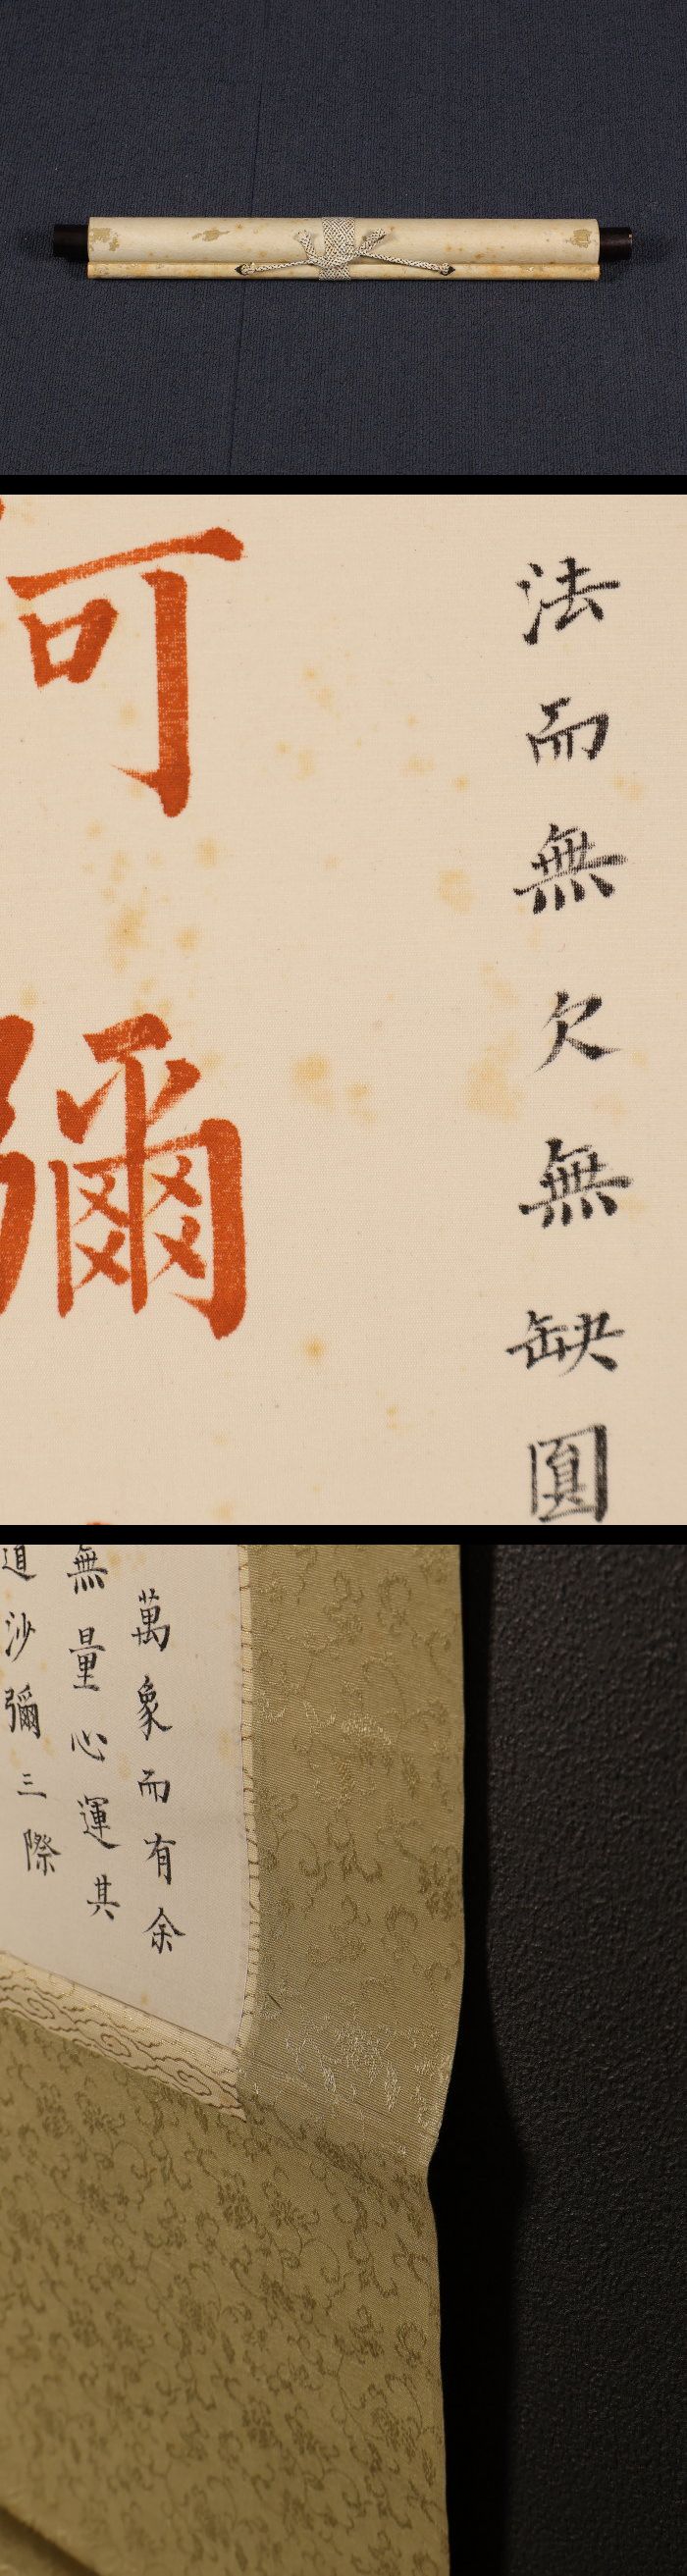 法而無欠無缺圓
可
彌
萬象而有余
無量心運其
道沙彌三際